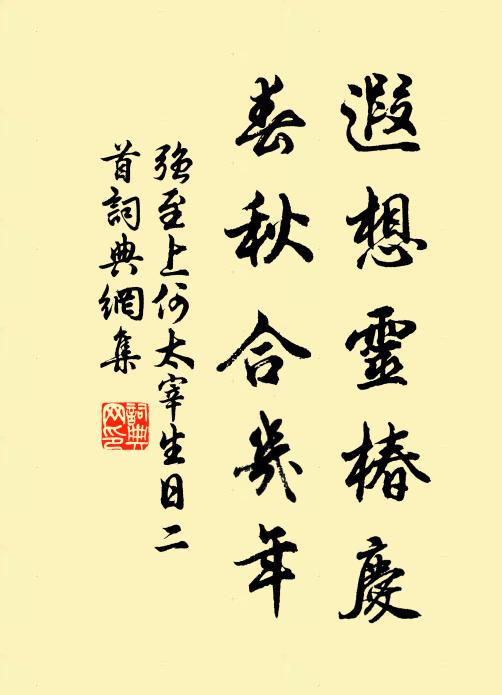 遐想靈椿慶
春秋合幾年
強至上何太宰生日二
首詞典網集
詞典
网印